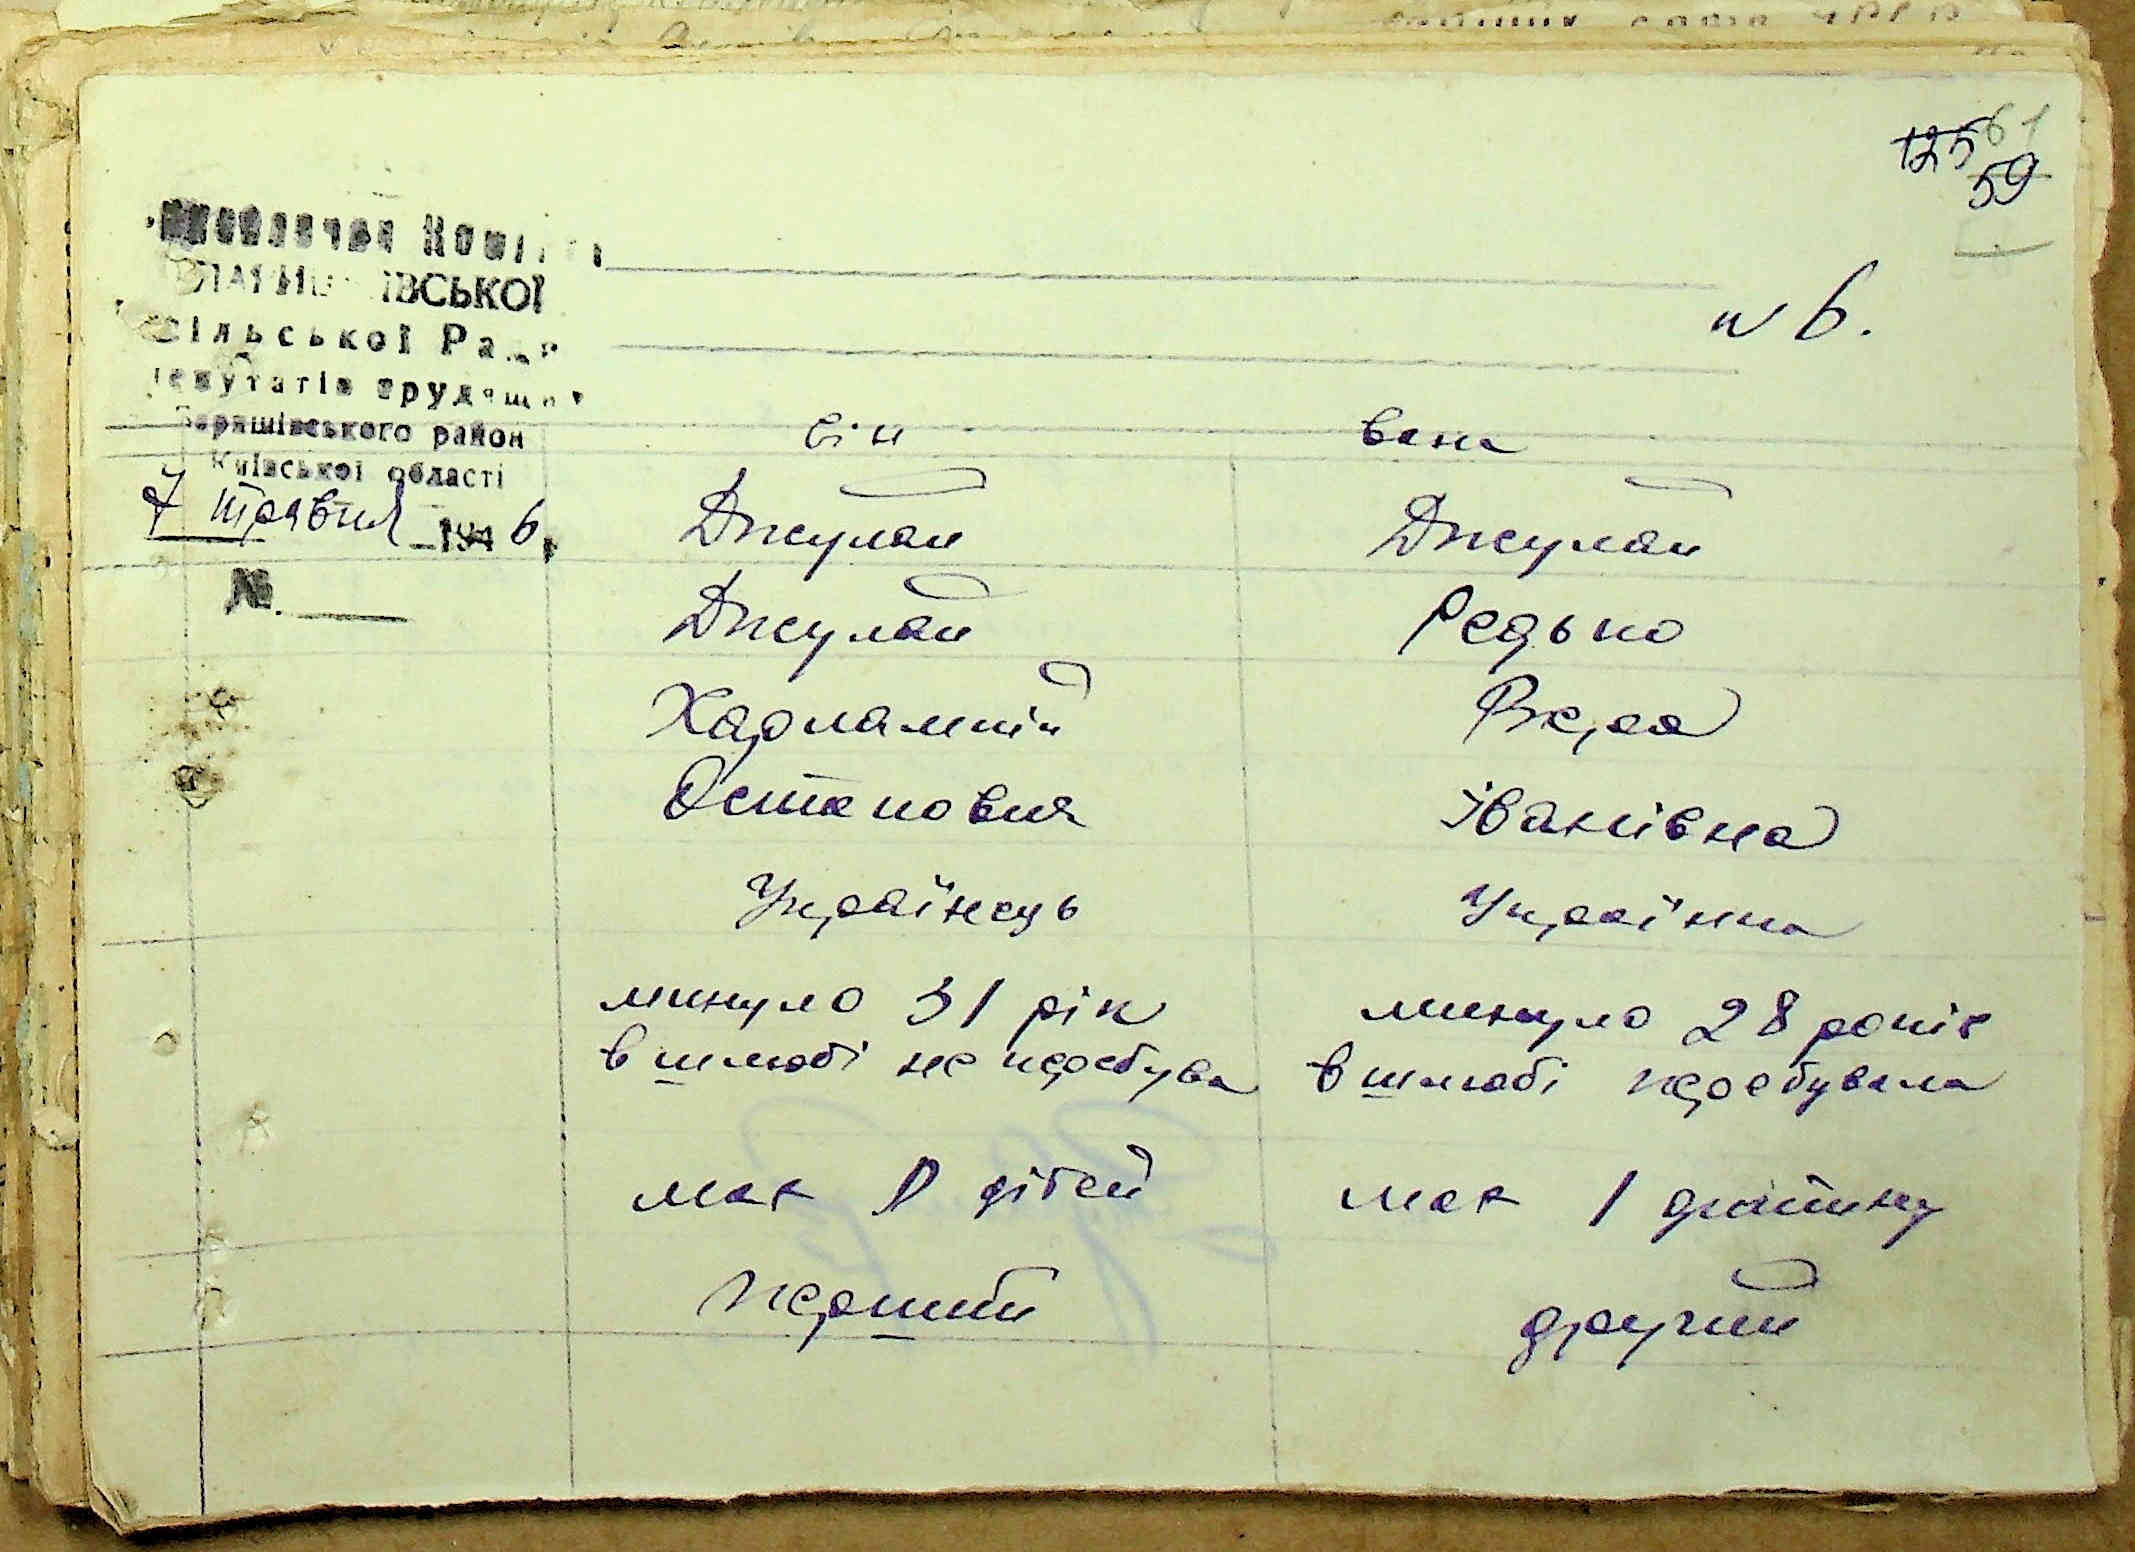 61
125
59
Виконавчий Комітет
ІВСЬКОЇ
сільської Ради
депутатів трудящих
Баришівського район
Київської області
7 травня 1946
№.
№ 6.
він вона
Джулай Джулай
Джулай Редько
Харлампій Віра
Остапович Іванівна
Українець Українка
минуло 31 рік минуло 28 років
в шлюбі не перебува в шлюбі перебувала
має 0 дітей має 1 дитину
перший другий